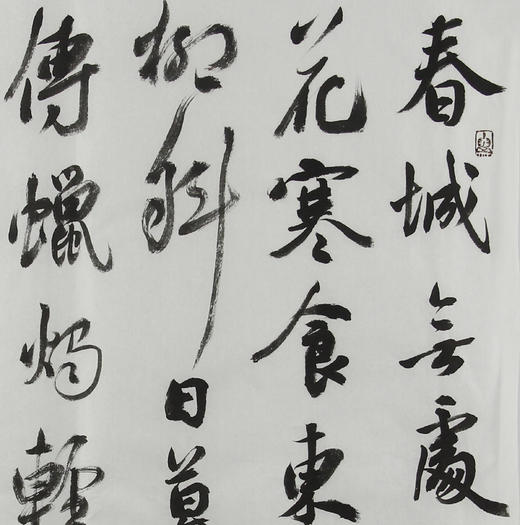 春城無處
花寒食東
柳斜日暮
傳蠟燭輕